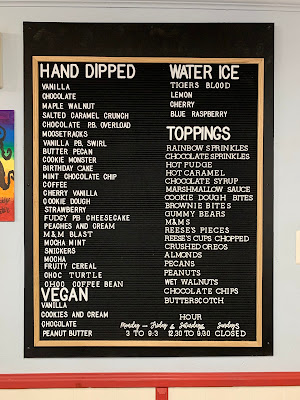 HAND DIPPED
VANILLA
CHOCOLATE
MAPLE WALNUT
SALTED CARAMEL CRUNCH
CHOCOLATE P.B. OVERLOAD
MOOSETRACKS
VANILLA P.B. SWIRL
BUTTER PECAN
COOKIE MONSTER
BIRTHDAY CAKE
MINT CHOCOLATE CHIP
COFFEE
CHERRY VANILLA
COOKIE DOUGH
STRAWBERRY
FUDGY P.B CHEESECAKE
PEACHES AND CREAM
M&M BLAST
MOCHA MINT
SNICKERS
MOCHA
FRUITY CEREAL
CHOC TURTLE
CHOC COFFEE BEAN
VEGAN
VANILLA
COOKIES AND CREAM
CHOCOLATE
PEANUT BUTTER
WATER ICE
TIGERS BLOOD
LEMON
CHERRY
BLUE RASPBERRY
TOPPINGS
RAINBOW SPRINKLES
CHOCOLATE SPRINKLES
HOT FUDGE
HOT CARAMEL
CHOCOLATE SYRUP
MARSHMALLOW SAUCE
COOKIE DOUGH BITES
BROWNIE BITES
GUMMY BEARS
M&M,S
REESE'S PIECES
REESE'S CUPS CHOPPED
CRUSHED OREOS
ALMONDS
PECANS
PEANUTS
WET WALNUTS
CHOCOLATE CHIPS
BUTTERSCOTCH
HOUR
Monday - Friday & Saturdays Sundays
3 TO 9:3 12,30 TO 9,30 CLOSED